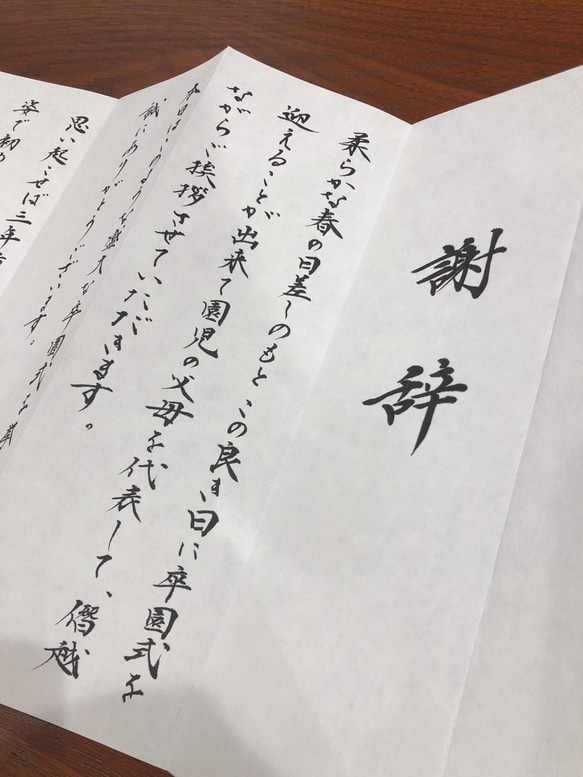 謝辞
柔らかな春の日差しのもと、この良き日に卒園式を
迎えることが出来て園児の父母を代表して、僭越
ながらご挨拶させていただきます。
本日はこのような盛大な卒園式を挙
誠にありがとうございます。
思い起こせば三年
姿で初め